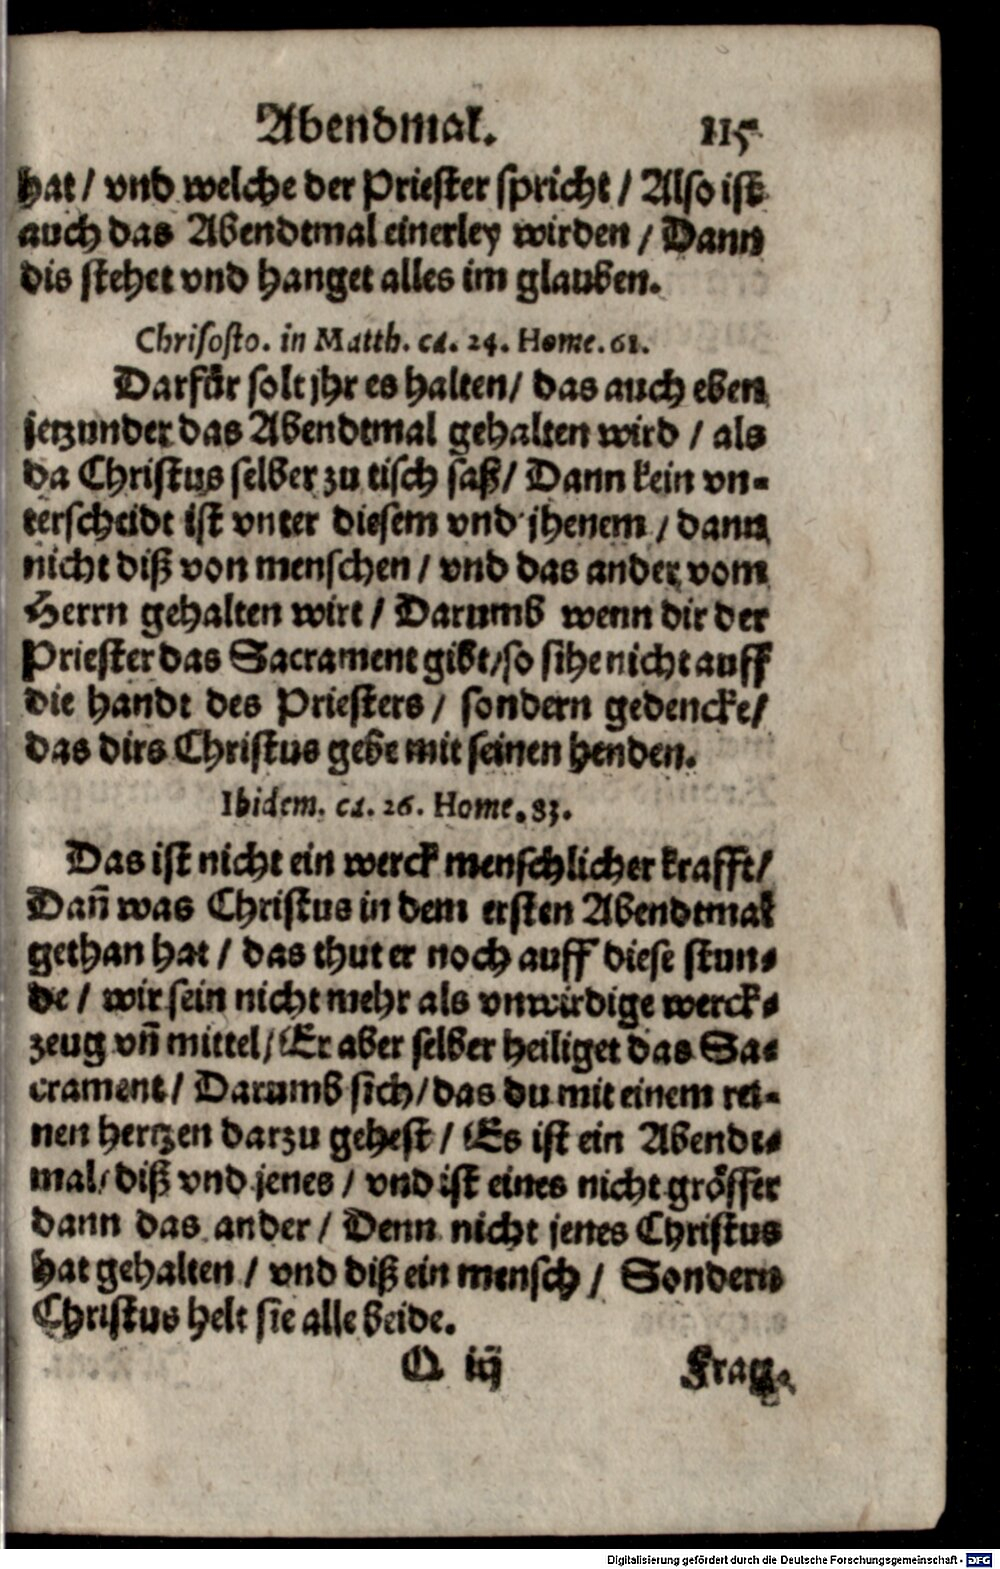 Abendmal. 115
hat / vnd welche der Priester spricht / Also ist
auch das Abendtmal einerley wirden / Dann
dis stehet vnd hanget alles im glauben.
Chrisosto. in Matth. ca. 24. Home. 61.
Darfür solt jhr es halten / das auch eben
jetzunder das Abendtmal gehalten wird / als
da Christus selber zu tisch saß / Dann kein vn-
terscheidt ist vnter diesem vnd jhenem / dann
nicht diß von menschen / vnd das ander vom
Herrn gehalten wirt / Darumb wenn dir der
Priester das Sacrament gibt / so sihe nicht auff
die handt des Priesters / sondern gedencke /
das dirs Christus gebe mit seinen henden.
Ibidem. ca. 26. Home. 83.
Das ist nicht ein werck menschlicher krafft /
Dañ was Christus in dem ersten Abendtmal
gethan hat / das thut er noch auff diese stun-
de / wir sein nicht mehr als vnwirdige werck-
zeug vñ mittel / Er aber selber heiliget das Sa-
crament / Darumb sich / das du mit einem rei-
nen hertzen darzu gehest / Es ist ein Abendt-
mal / diß vnd jenes / vnd ist eines nicht grösser
dann das ander / Denn nicht jenes Christus
hat gehalten / vnd diß ein mensch / Sondern
Christus helt sie alle beide.
Q iij Frag-
Digitalisierung gefördert durch die Deutsche Forschungsgemeinschaft - DFG